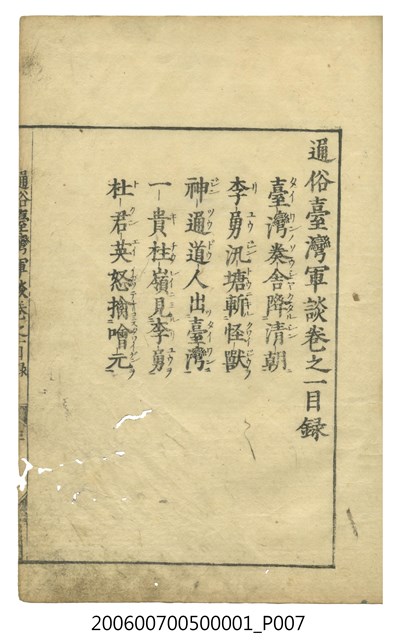 通俗臺灣軍談卷之一目録
臺灣秦舍降清朝
李勇沉塘斬怪獸
神通道人出臺灣
一貴杜嶺見李勇
杜君英怒擒噲元
通俗臺灣軍談卷之一目録
200600700500001_P007